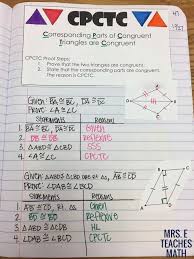 CPCTC
Corresponding Parts of Congruent
Triangles are Congruent
CPCTC Proof Steps:
1. Prove that the two triangles are congruent.
2. State that the corresponding parts are congruent.
The reason is CPCTC.
Given: BA ≅ BC, DA ≅ DC
Prove: ∠A ≅ ∠C
Statements Reasons
1. BA ≅ BC, DA ≅ DC Given
2. BD ≅ BD Reflexive
3. △ABD ≅ △CBD SSS
4. ∠A ≅ ∠C CPCTC
Prove: ∠DAB ≅ ∠BCD
Statements Reasons
Given
2. BD ≅ BD Reflexive
3. △ABD ≅ △CDB HL
4. ∠DAB ≅ ∠BCD CPCTC
MRS. E
TEACHES
MATH